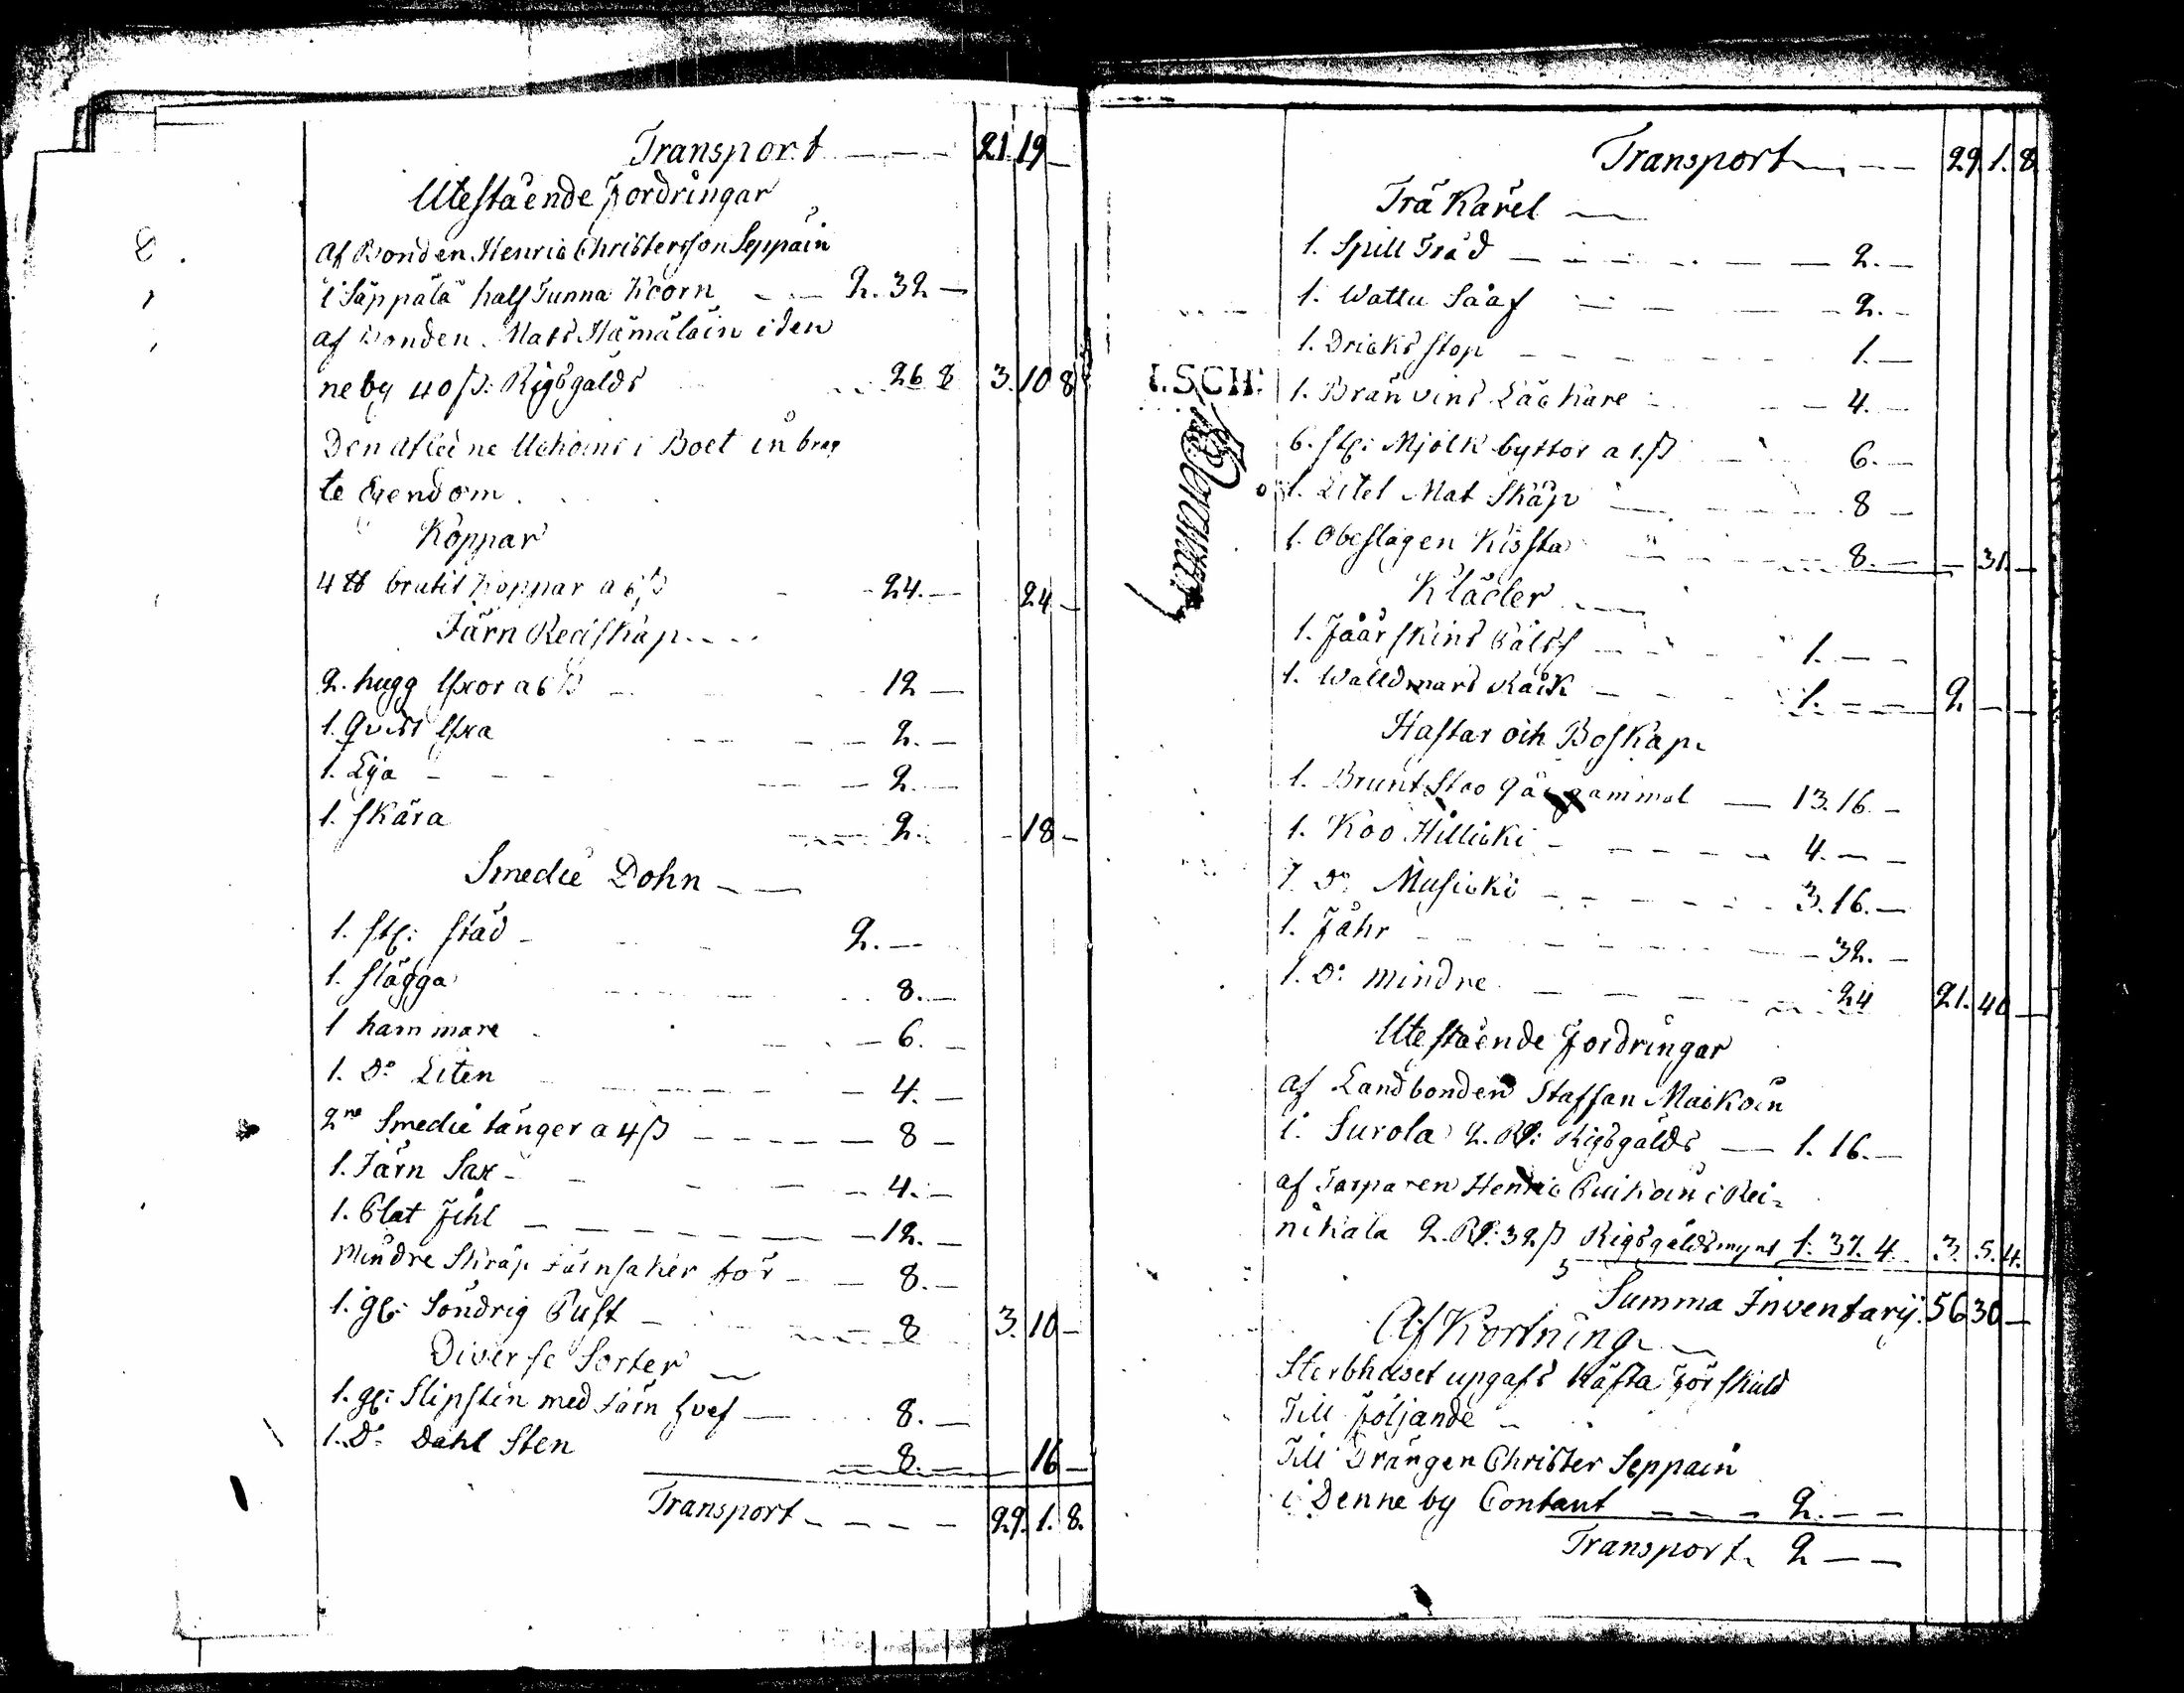 Transport 21 19 —
Utestående fordringar
Af Bonden Henric Christersson Seppäin
i Säppälä half Tunna Koorn 2. 32 —
af Bonden Mats Hämäläin i den
ne by 40 ß: Rigsgälds 26 8 3. 10 8
Den afledne i Boet inbrag
te Egendom
Koppar
4 ℔ brukit Koppar a 6 ß 24. — 24 —
Järn Redskap
2. hugg Yxor a 6 ß 12 —
1. Qvist Yxa 2. —
1. Lija 2. —
1. Skära 2. 18 —
Smedie Dohn
1. st: städ 2. —
1. slägga 8. —
1 hammare 6. —
1. D:o Liten 4. —
2ne Smedie tänger a 4 ß 8 —
1. Järn Sax 4. —
1. Plat Fihl 12. —
Mindre Skrap Järnsaker för 8. —
1. gl: Söndrig Pust 8 3. 10 —
Diverse Sorter
1. gl: Slipsten med Järn hvef 8. —
1. D:o Dahl Sten 8. — 16 —
Transport 29. 1. 8.
Transport 29. 1. 8.
Trä Kärel
1. Spill Träd 2. —
1. Wattu Sååf 2. —
1. Dricks stop 1. —
1. Bränvins Läckare 4. —
6. st: Mjölk byttor a 1. ß 6. —
1. Litet Mat Skåp 8 —
1. Obeslagen Kissta 8. — 31. —
Kläder
1. Fåårskins Pälss 1. — —
1. Walldmars Råck 1. — — 2 — —
Hästar och Boskap
1. Brunt Stoo 9 år gammal 13. 16. —
1. Koo Hillicki 4. — —
1. D:o Musicki 3. 16. —
1. Fåhr 32. —
1. D:o mindre 24 21. 40 —
Utestående fordringar
af Landbonden Staffan Maikoin
i Surola 2. Rd: Rigsgälds 1. 16. —
af Torparen Henric Puikoin i Rei=
nikala 2. Rd: 32 ß Rigsgäldsmynt 1. 37. 4. 3. 5. 4.
Summa Inventarij. 56 30 —
Af Kortning
Sterbhuset upgafs häfta för skuld
Till följande
Till Drängen Christer Seppain
i Denne by Contant 2. — —
Transport 2 — —